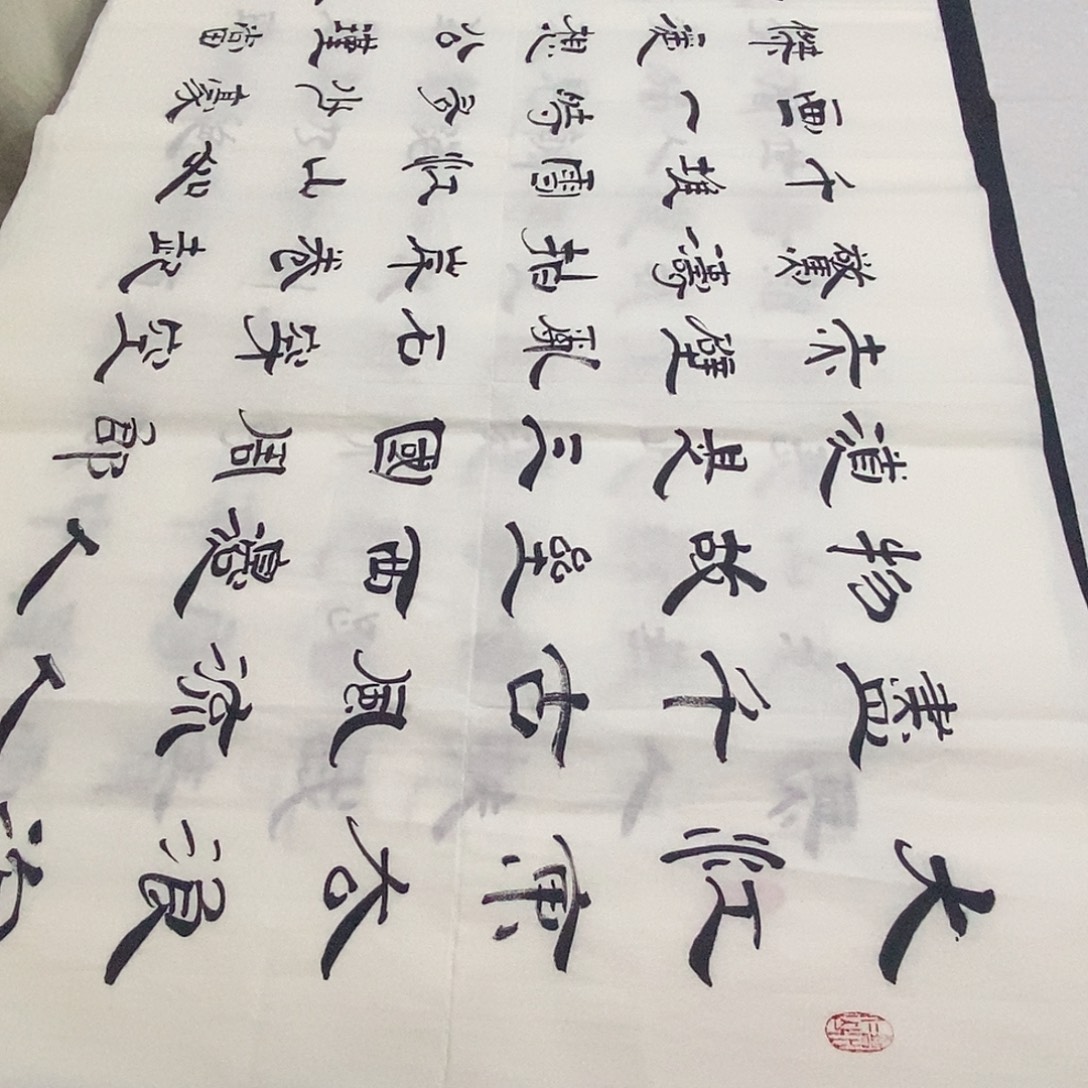 大江東去浪淘
盡千古風流人
物故壘西邊人
道是三國周郎
赤壁亂石穿空
驚濤拍岸卷起
千堆雪江山如
画一時多少豪
傑遥想公瑾當